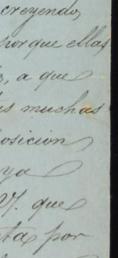 creyendo,
porque ellas
a que
muchas
posicion
ya
27. que
por